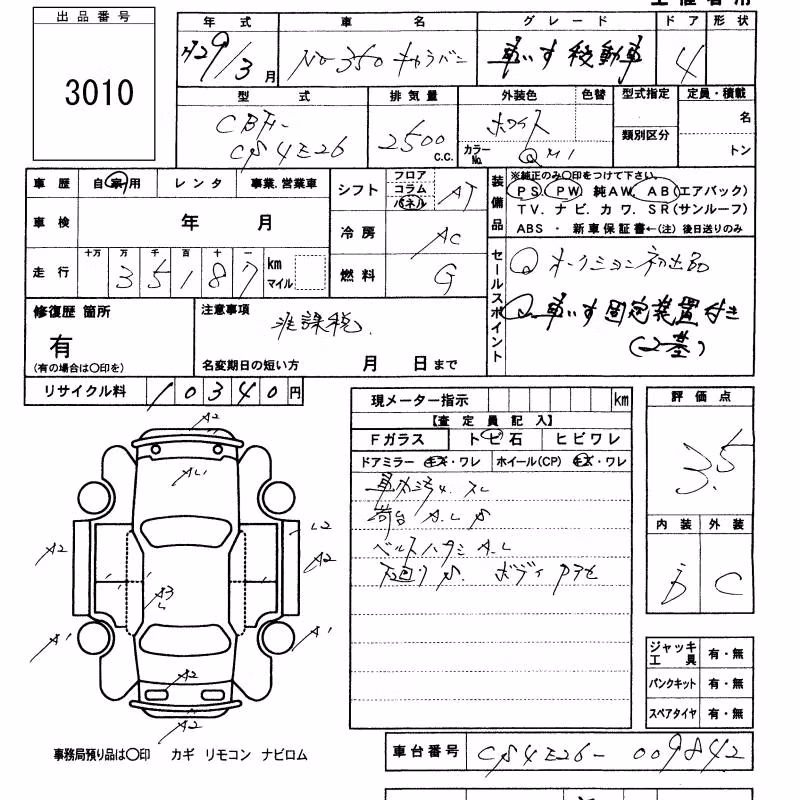 出品番号
3010
年式 車名 グレード ドア 形状
H29/3月 NV350 キャラバン 車いす移動車 4
型式 排気量 外装色 色替 型式指定 定員・積載
CBF- ホワイト 名
CS4E26 2500 C.C. カラーNo. QM1 類別区分 トン
車歴 自家用 レンタ 事業.営業車 シフト フロア コラム パネル AT
装備品 ※純正のみ○印をつけて下さい。
PS PW 純AW AB(エアバック)
TV.ナビ.カワ.SR(サンルーフ)
ABS・新車保証書←(注)後日送りのみ
車検 年 月 冷房 AC
走行 十万 万 千 百 十 一 km マイル
35187 燃料 G
セールスポイント
オークション初出品
車いす固定装置付き
(2基)
修復歴 箇所 注意事項
有 非課税.
(有の場合は○印を) 名変期日の短い方 月 日まで
リサイクル料 10340円
現メーター指示 km 評価点
【査定員記入】 3.5
Fガラス トビ石 ヒビワレ
ドアミラー キズ・ワレ ホイール(CP) キズ・ワレ
車内汚れ.スレ
荷台 A.L S
ベルトハズミ A.L
下廻り S. ボディ アセ
内装 外装
B C
A2
AL1
A2 L2
A2
A3
L
A1 A1
A2
A2
ジャッキ工具 有・無
パンクキット 有・無
スペアタイヤ 有・無
事務局預り品は○印 カギ リモコン ナビロム
車台番号 CS4E26-009842